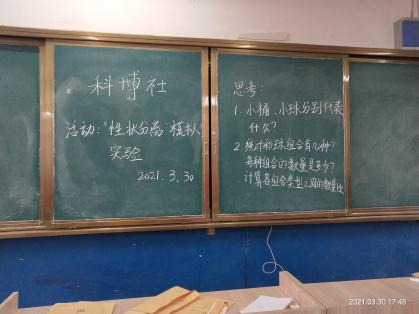 科博社
活动：“性状分离”模拟
实验
2021.3.30
思考：
1. 小桶、小球分别代表
什么？
2. 统计彩球组合有几种？
每种组合的数量是多少？
计算各组合类型之间的数量比
2021.03.30 17:48